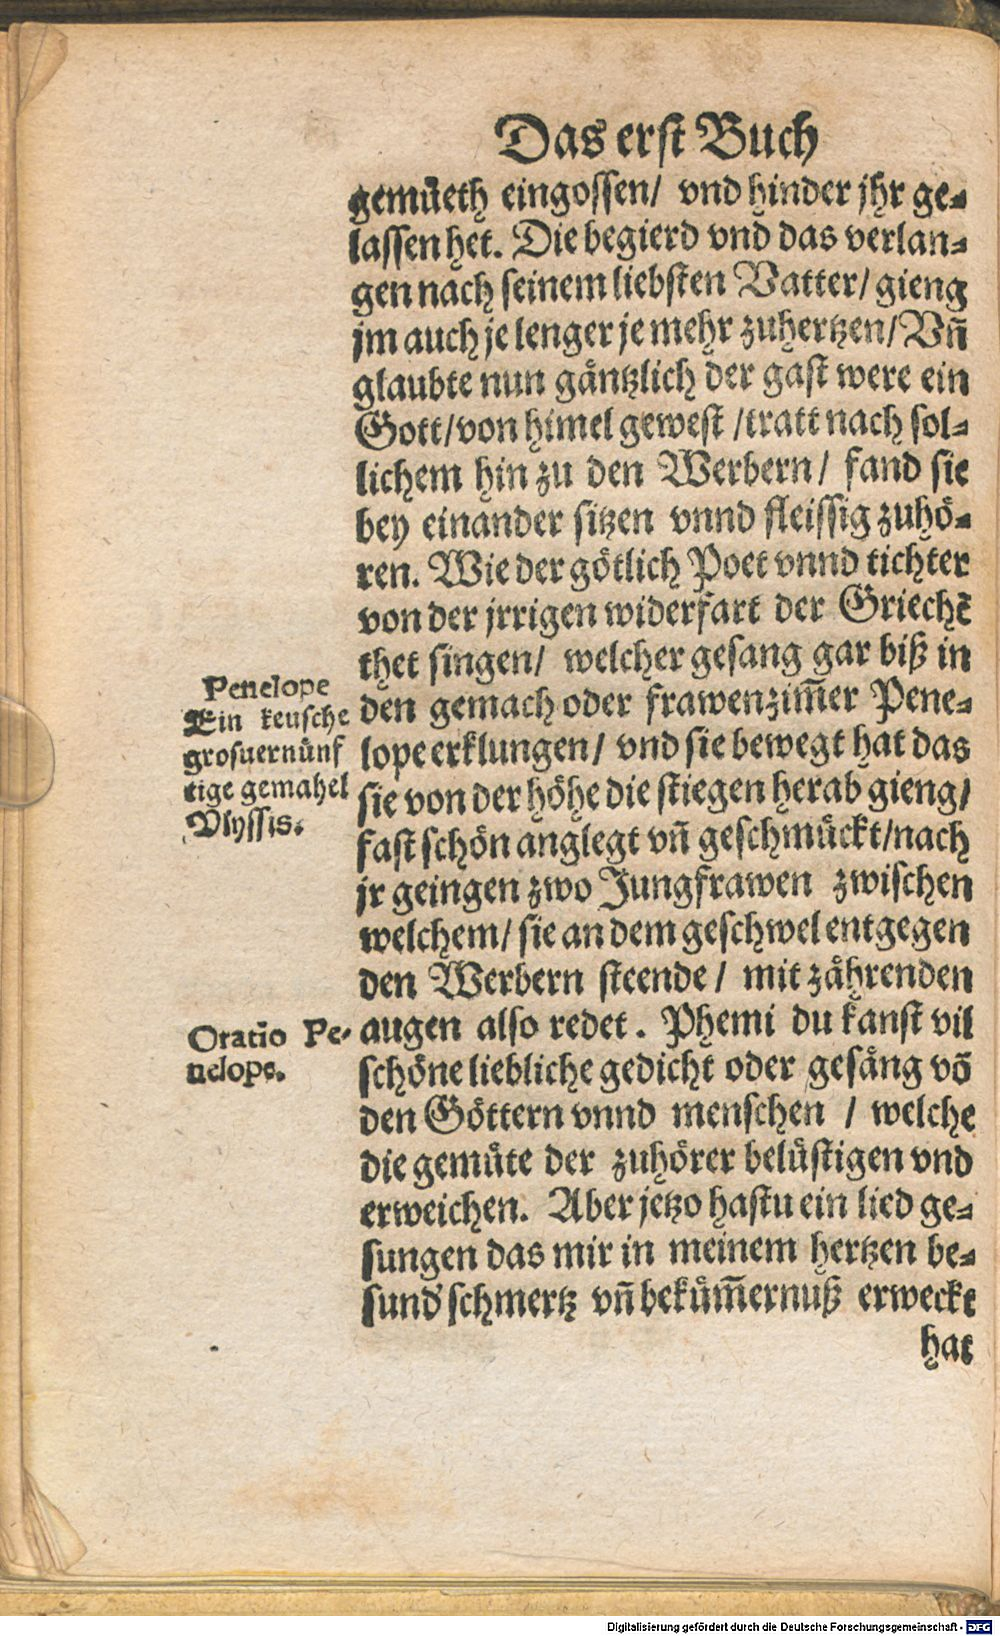 Das erst Buch
gemüeth eingossen/ vnd hinder jhr ge⸗
lassen het. Die begierd vnd das verlan⸗
gen nach seinem liebsten Vatter/ gieng
jm auch je lenger je mehr zuhertzen/ Vn̄
glaubte nun gäntzlich der gast were ein
Gott/ von himel gewest / tratt nach sol⸗
lichem hin zu den Werbern/ fand sie
bey einander sitzen vnnd fleissig zuhö⸗
ren. Wie der götlich Poet vnnd tichter
von der jrrigen widerfart der Griechē
thet singen/ welcher gesang gar biß in
den gemach oder frawenzim̄er Pene⸗
lope erklungen/ vnd sie bewegt hat das
sie von der höhe die stiegen herab gieng/
fast schön anglegt vn̄ geschmückt/ nach
jr geingen zwo Jungfrawen zwischen
welchem/ sie an dem geschwel entgegen
den Werbern steende/ mit zährenden
augen also redet. Phemi du kanst vil
schöne liebliche gedicht oder gesäng vō
den Göttern vnnd menschen / welche
die gemüte der zuhörer belüstigen vnd
erweichen. Aber jetzo hastu ein lied ge⸗
sungen das mir in meinem hertzen be⸗
sund' schmertz vn̄ beküm̄ernuß erweckt
hat
Penelope
Ein keusche
grosuernünf
tige gemahel
Vlyssis.
Oratio Pe-
nelope.
Digitalisierung gefördert durch die Deutsche Forschungsgemeinschaft - DFG